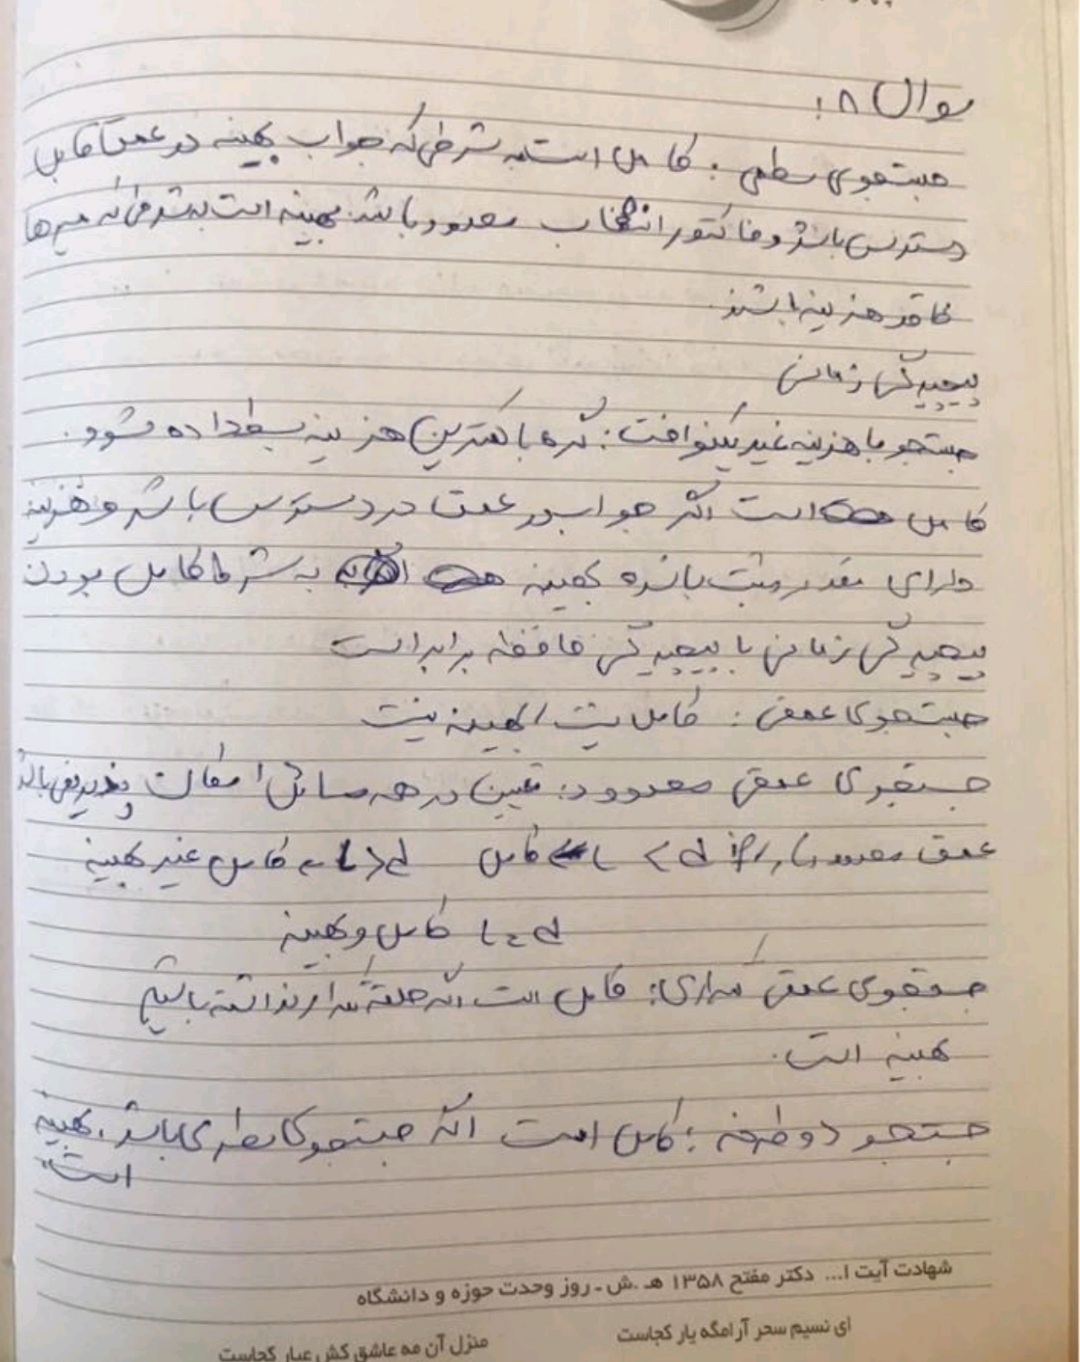 سوال ۸:
جستجوی سطحی: کامل است به شرطی که جواب بهینه در عمق قابل
دسترس باشد و فاکتور انشعاب محدود باشد. بهینه است به شرطی که مسیرها
فاقد هزینه باشند.
پیچیدگی زمانی
جستجو با هزینه غیر یکنواخت: گره با کمترین هزینه بسط داده میشود.
کامل است اگر جواب در عمق در دسترس باشد و هزینه
دارای مقدار مثبت باشد بهینه به شرط کامل بودن
پیچیدگی زمانی با پیچیدگی حافظه برابر است
جستجوی عمقی: کامل نیست بهینه نیست
جستجوی عمقی محدود: تعیین در همه مسائل امکان پذیر نمی باشد
عمق محدود d > L کامل d < L کامل غیر بهینه
d = L کامل و بهینه
جستجوی عمقی تکراری: کامل است اگر حلقه تکرار نداشته باشیم
بهینه است.
جستجو دو طرفه: کامل است اگر جستجو سطری باشد. بهینه
است.
شهادت آیت ا... دکتر مفتح ۱۳۵۸ هـ .ش - روز وحدت حوزه و دانشگاه
ای نسیم سحر آرامگه یار کجاست منزل آن مه عاشق کش عیار کجاست